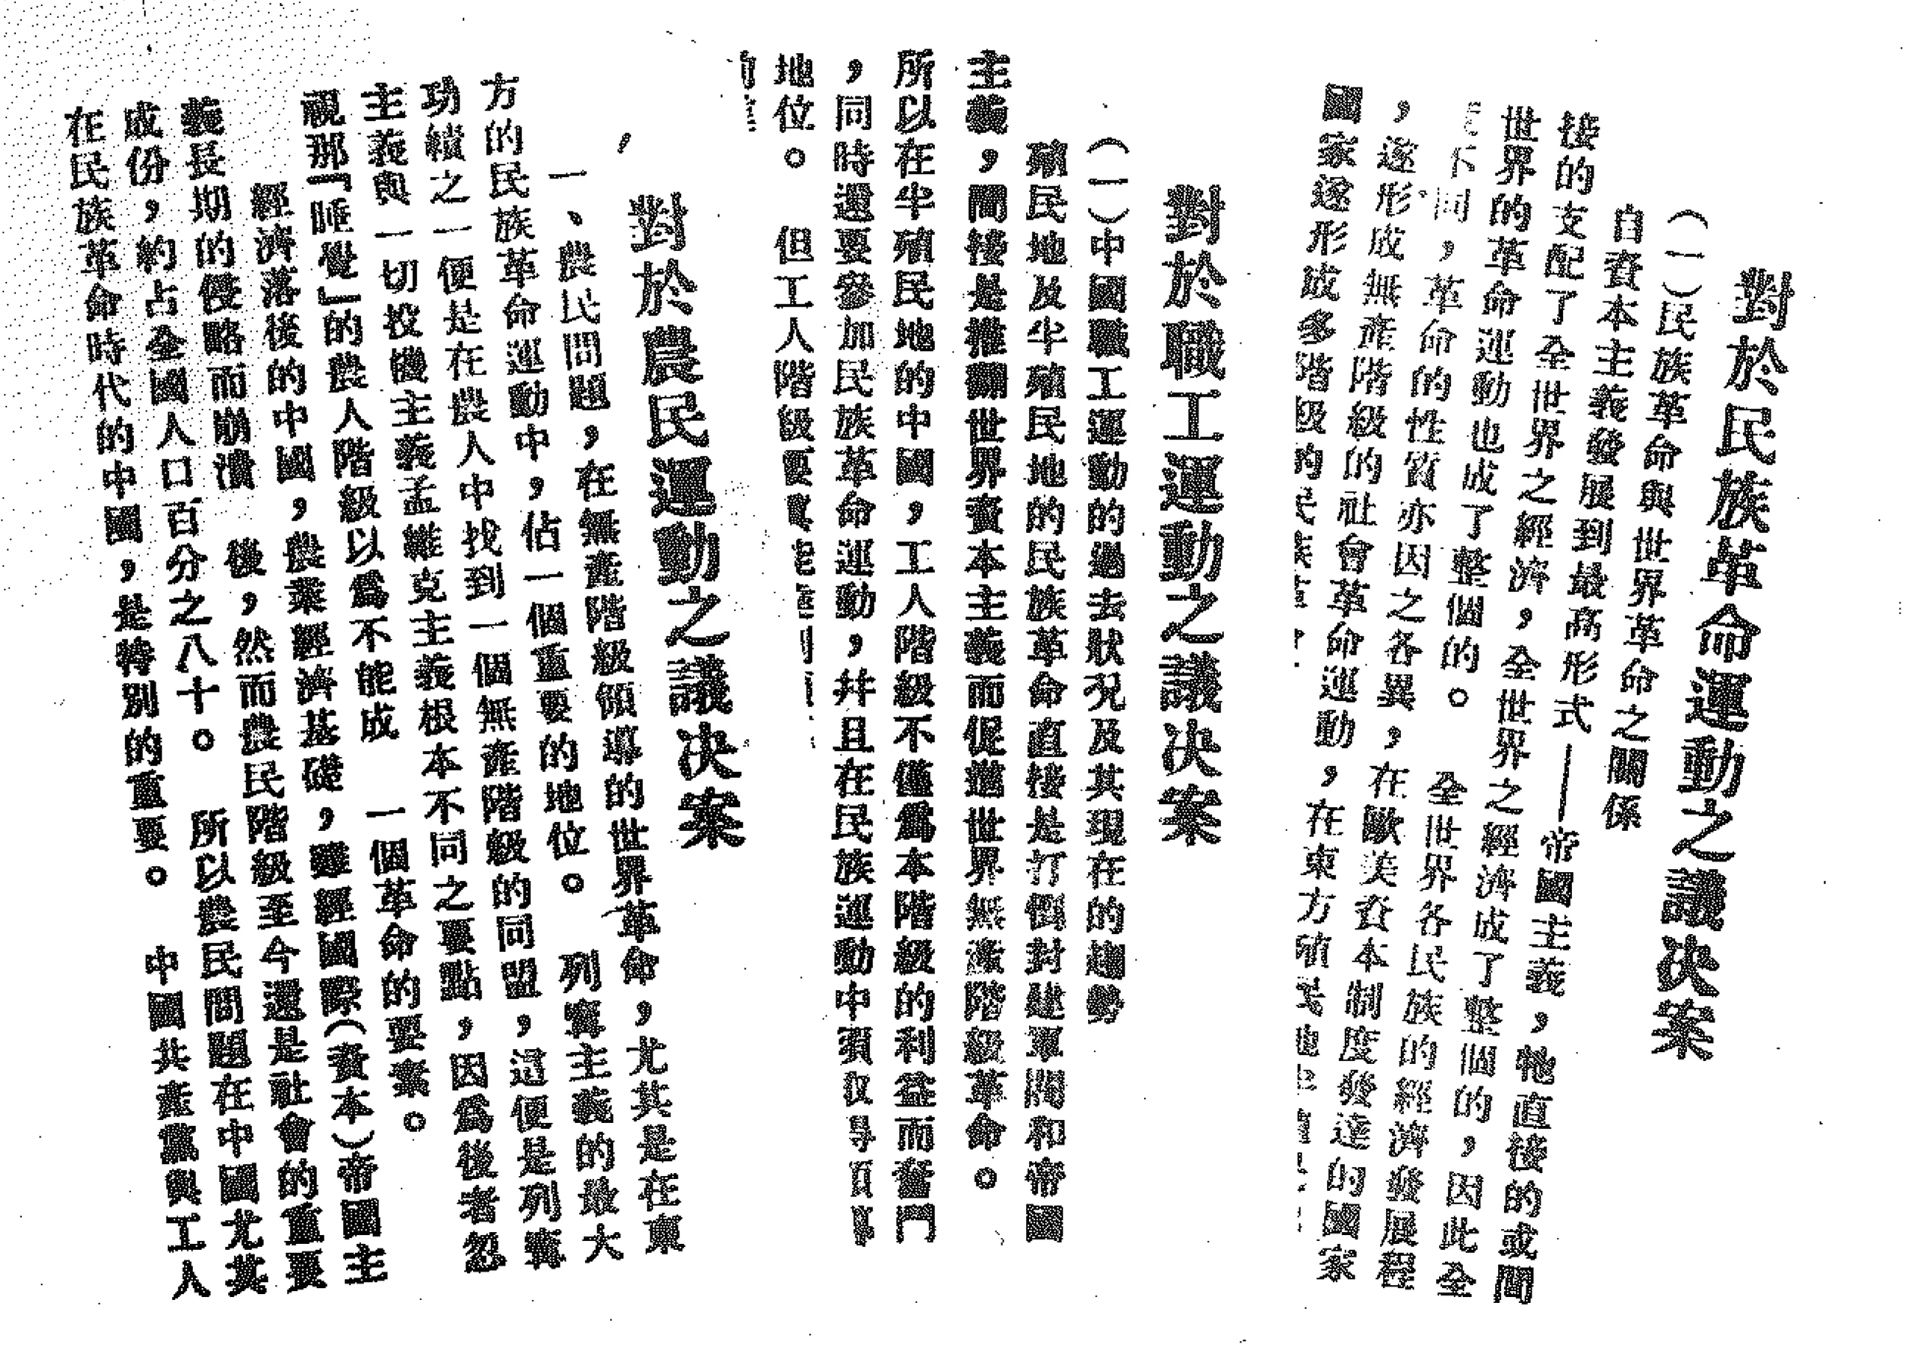 對於民族革命運動之議決案
（一）民族革命與世界革命之關係
自資本主義發展到最高形式——帝國主義，牠直接的或間
接的支配了全世界之經濟，全世界之經濟成了整個的，因此全
世界的革命運動也成了整個的。　全世界各民族的經濟發展程
不同，革命的性質亦因之各異，在歐美資本制度發達的國家
，遂形成無產階級的社會革命運動，在東方殖民地
國家遂形成多階級的民族革
對於職工運動之議決案
（一）中國職工運動的過去狀况及其現在的趨勢
殖民地及半殖民地的民族革命直接是打倒封建軍閥和帝國
主義，間接是推翻世界資本主義而促進世界無產階級革命。
所以在半殖民地的中國，工人階級不僅爲本階級的利益而奮鬥
，同時還要參加民族革命運動，幷且在民族運動中須取得領導
地位。　但工人階級要
對於農民運動之議決案
一、農民問題，在無產階級領導的世界革命，尤其是在東
方的民族革命運動中，佔一個重要的地位。　列寗主義的最大
功績之一便是在農人中找到一個無產階級的同盟，這便是列寗
主義與一切投機主義孟雖克主義根本不同之要點，因爲後者忽
視那『睡覺』的農人階級以爲不能成　一個革命的要素。
經濟落後的中國，農業經濟基礎，雖經國際（資本）帝國主
義長期的侵略而崩潰　後，然而農民階級至今還是社會的重要
成份，約占全國人口百分之八十。　所以農民問題在中國尤其
在民族革命時代的中國，是特別的重要。　中國共產黨與工人